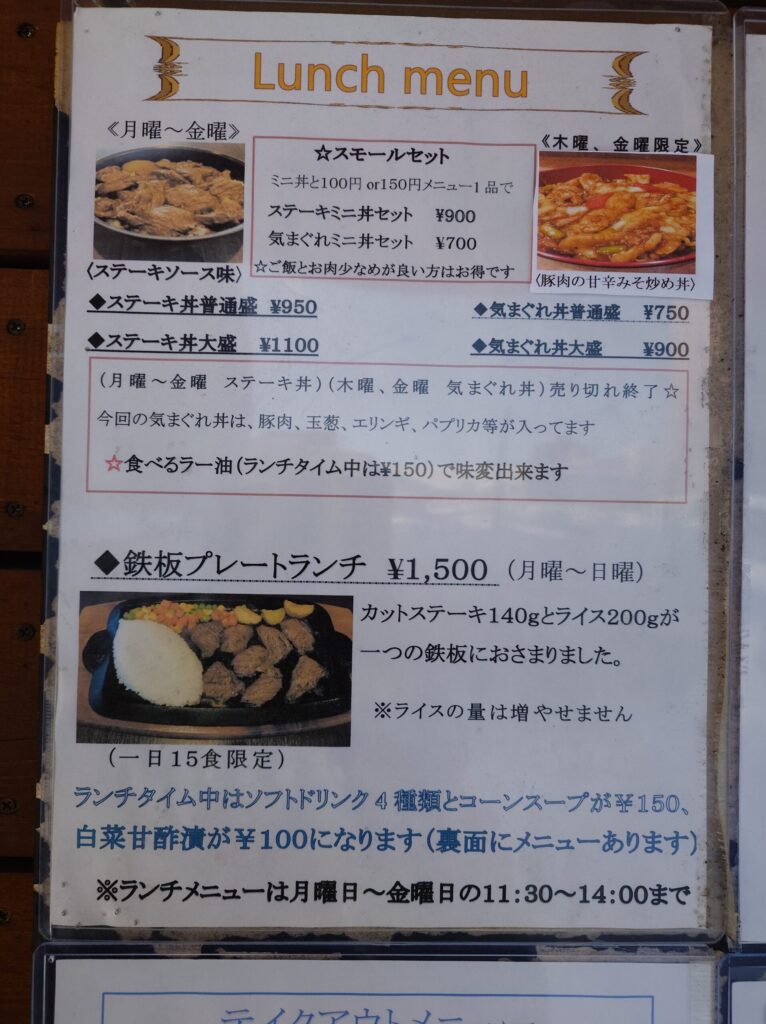 Lunch menu
《月曜～金曜》
☆スモールセット
ミニ丼と100円 or150円メニュー1品で
ステーキミニ丼セット ¥900
気まぐれミニ丼セット ¥700
☆ご飯とお肉少なめが良い方はお得です
《木曜、金曜限定》
〈ステーキソース味〉
〈豚肉の甘辛みそ炒め丼〉
◆ステーキ丼普通盛 ¥950
◆気まぐれ丼普通盛 ¥750
◆ステーキ丼大盛 ¥1100
◆気まぐれ丼大盛 ¥900
(月曜～金曜 ステーキ丼)(木曜、金曜 気まぐれ丼)売り切れ終了☆
今回の気まぐれ丼は、豚肉、玉葱、エリンギ、パプリカ等が入ってます
☆食べるラー油(ランチタイム中は¥150)で味変出来ます
◆鉄板プレートランチ ¥1,500 (月曜～日曜)
カットステーキ140gとライス200gが
一つの鉄板におさまりました。
※ライスの量は増やせません
(一日15食限定)
ランチタイム中はソフトドリンク4種類とコーンスープが¥150、
白菜甘酢漬が¥100になります(裏面にメニューあります)
※ランチメニューは月曜日～金曜日の11:30～14:00まで
テイクアウトメニュー